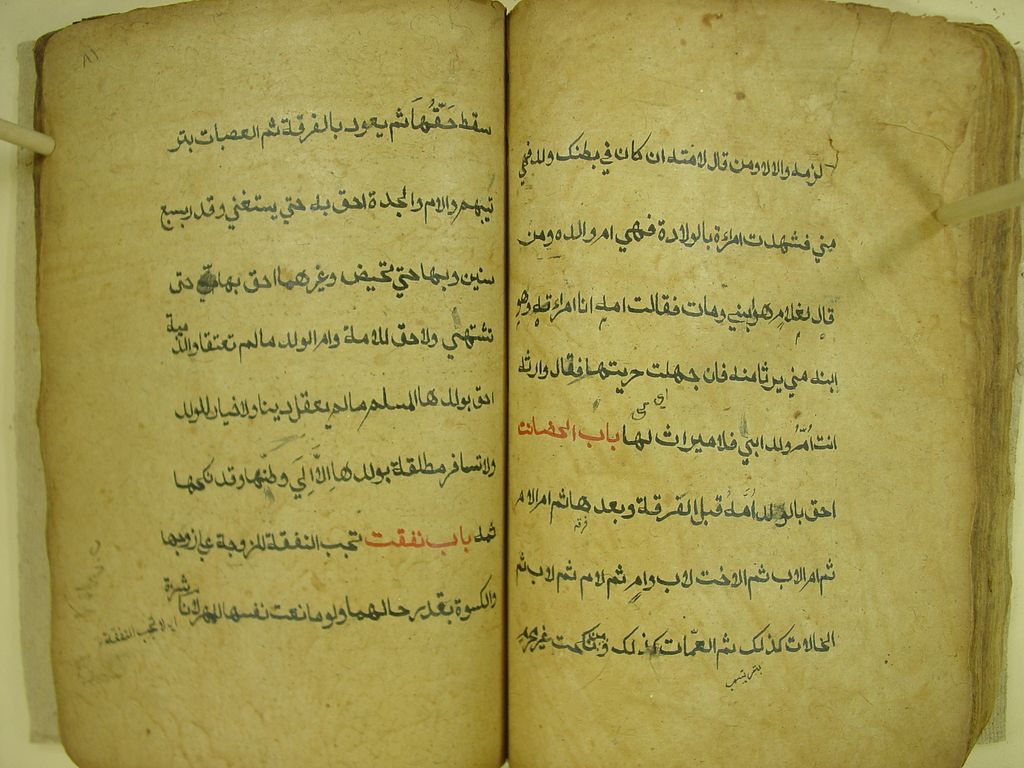 لزمه والا لا ومن قال لامته ان كان في بطنك ولد فهي
مني فشهدت امراءة بالولادة فهي ام والده ومن
قال لغلام هو ابني ومات فقالت امه انا امراءته وهو
ابنه مني يرثا منه فان جهلت حريتها فقال وارثه
انت اُمّ ولد ابني فلا ميراث لها باب الحضانت
احق بالولد اُمّهُ قبل الفرقة وبعدها ثم ام الام
فرقة
ثم ام الاب ثم الاخت لاب وام ثم لام ثم لاب ثم
الخالات كذلك ثم العمّات كذلك ومن نكحت غير محرم
بترتيبهم
٨١
سقط حَقّهَا ثم يعود بالفرقة ثم العصبات بتر
تيبهم والام والجدة احق به حتي يستغني وقدر بسبع
سنين وبها حتي تحيض وغيرهما احق بها حتى
تشتهي ولا حق للامة وام الولد مالم تعتقا والذمية
احق بولدها المسلم مالم يعقل دينا ولا خيار للولد
ولا تسافر مطلقة بولدها الاّ الي وطنها وقد نكحها
ثمه باب نفقت تجب النفقة للزوجة علي زوجها
والكسوة بقدر حالهما ولو مانعت نفسها للمهر لا ناشزة
اي لا تجب النفقة